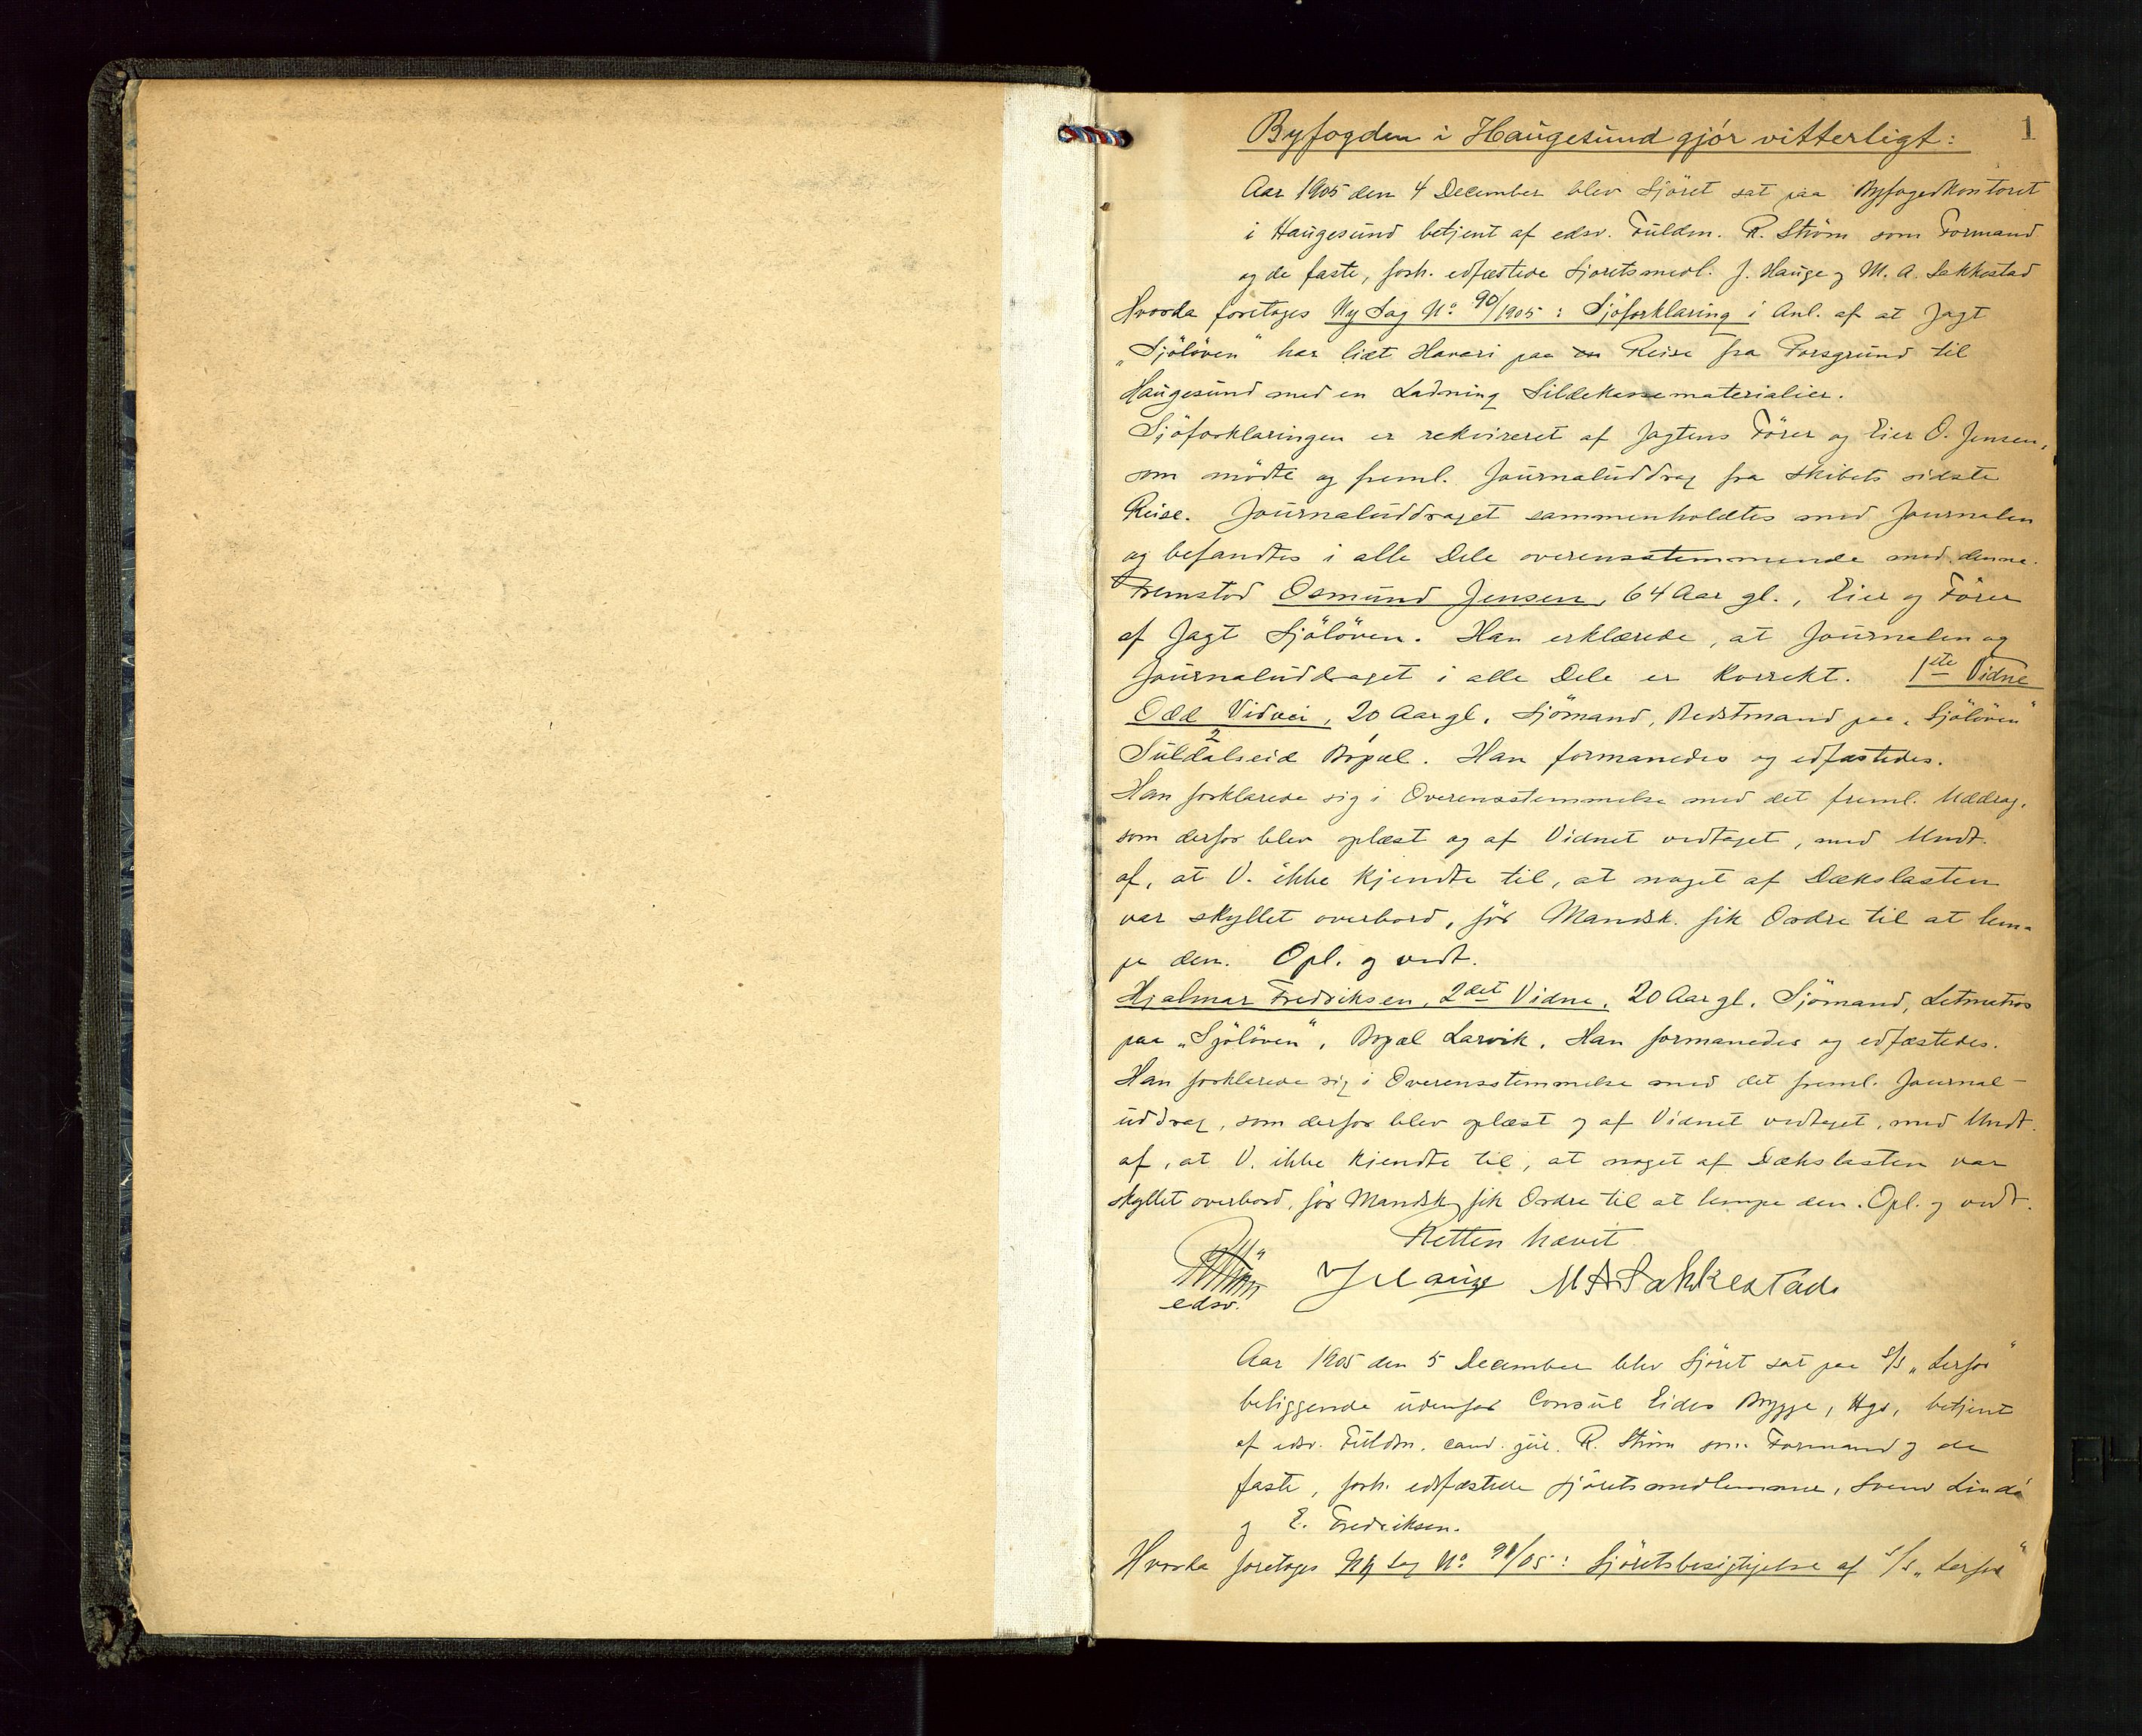 1
Byfogden i Haugesund gjør vitterligt:
Aar 1905 den 4 December blev Sjöret sat paa Byfogedkontoret
i Haugesund betjent af edsv. Fuldm. R. Ström som Formand
og de faste, forh. edfæstede Sjöretsmedl. J. Hauge og M. A. Sakkestad
Hvorda foretoges Ny Sag No. 90/1905: Sjöforklaring i Anl. af at Jagt
„Sjölöven" har lidt Havari paa en Reise fra Porsgrund til
Haugesund med en Ladning Sildekassematerialier.
Sjöforklaringen er rekvireret af Jagtens Förer og Eier O. Jensen,
som mödte og freml. Journaluddrag fra Skibets sidste
Reise. Journaluddraget sammenholdtes med Journalen
og befandtes i alle Dele overensstemmende med denne.
Fremstod Osmund Jensen, 64 Aar gl., Eier og Förer
af Jagt Sjölöven. Han erklærede, at Journalen og
Journaluddraget i alle Dele er korrekt. 1ste Vidne
Odd Vidvei, 20 Aar gl. Sjömand, Bedstmand paa „Sjölöven"
Suldalseid Bopæl. Han formanedes og edfæstedes.
Han forklarede sig i Overensstemmelse med det freml. Uddrag,
som derfor blev oplæst og af Vidnet vedtaget, med Undt.
af, at V. ikke kjendte til, at noget af Dækslasten
var skyllet overbord, för Mandsk. fik Ordre til at lem-
pe den. Opl. og vedt.
Hjalmar Fredriksen, 2det Vidne, 20 Aar gl. Sjömand, Letmatros
paa „Sjölöven", Bopæl Larvik. Han formanedes og edfæstedes.
Han forklarede sig i Overensstemmelse med det freml. Journal-
uddrag, som derfor blev oplæst og af Vidnet vedtaget, med Undt.
af, at V. ikke kjendte til, at noget af Dækslasten var
skyllet overbord, för Mandsk. fik Ordre til at lempe den. Opl. og vedt.
Retten hævet
RStröm J Hauge M A Sakkestad
edsv.
Aar 1905 den 5 December blev Sjöret sat paa S/S „Lerfos"
beliggende udenfor Consul Eides Brygge, Hgs, betjent
af edsv. Fuldm. cand. jur. R. Ström som Formand og de
faste, forh. edfæstede Sjöretsmedlemmer, Svend Lindö
og E. Fredriksen.
Hvorda foretoges Ny Sag No. 91/05: Sjöretsbesigtigelse af S/S „Lerfos"